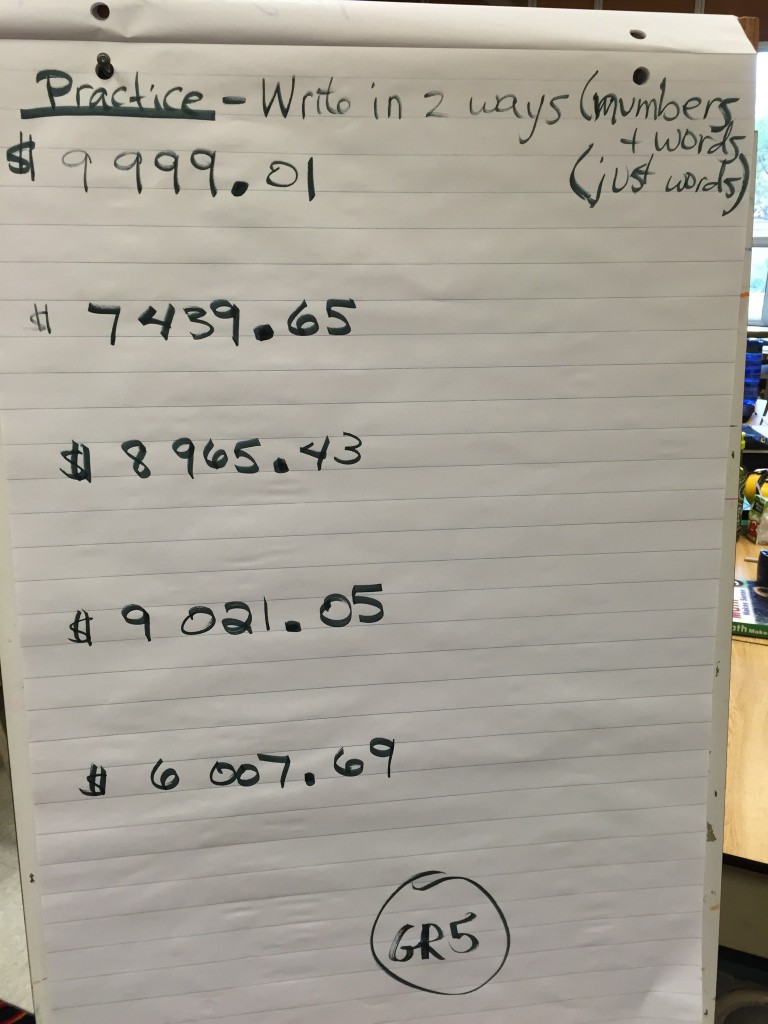 Practice - Write in 2 ways (numbers
+ words)
$ 9 999.01
(just words)
$ 7 439.65
$ 8 965.43
$ 9 021.05
$ 6 007.69
GR5